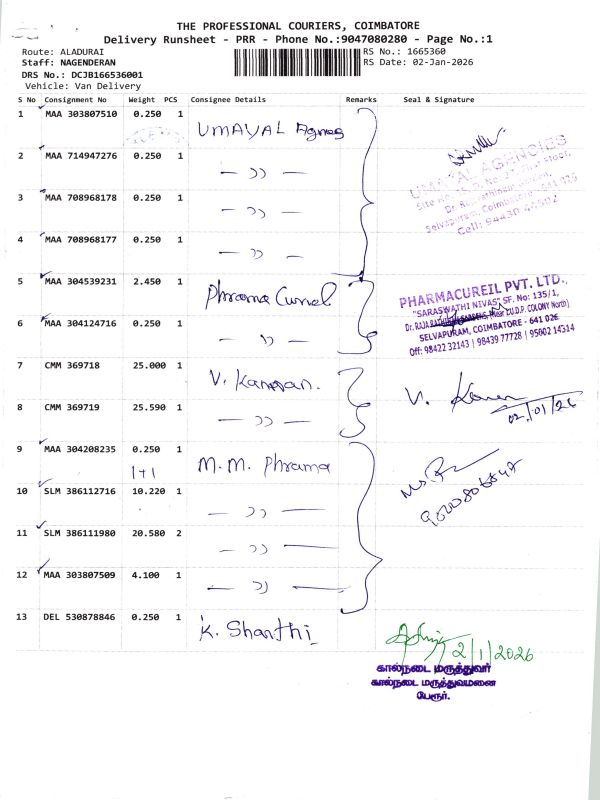 THE PROFESSIONAL COURIERS, COIMBATORE
Delivery Runsheet - PRR - Phone No.:9047080280 - Page No.:1
Route: ALADURAI RS No.: 1665360
Staff: NAGENDERAN RS Date: 02-Jan-2026
DRS No.: DCJB166536001
Vehicle: Van Delivery
S No Consignment No Weight PCS Consignee Details Remarks Seal & Signature
1 MAA 303807510 0.250 1 UMAYAL Agnes
2 MAA 714947276 0.250 1 — )) —
3 MAA 708968178 0.250 1 — )) —
4 MAA 708968177 0.250 1 — )) —
UMAYAL AGENCIES
Selvapuram, Coimbatore - 641 026
5 MAA 304539231 2.450 1 Phrama Curiel
6 MAA 304124716 0.250 1 — )) —
PHARMACUREIL PVT. LTD.,
"SARASWATHI NIVAS" SF. No: 135/1,
(Near T.U.D.P. COLONY North)
SELVAPURAM, COIMBATORE - 641 026
Off: 98422 32143 | 98439 77728 | 95002 14314
7 CMM 369718 25.000 1 V. Kannan.
8 CMM 369719 25.590 1 — )) —
V.
02/01/26
9 MAA 304208235 0.250 1 M.M. Phrama
1+1
10 SLM 386112716 10.220 1 — )) —
11 SLM 386111980 20.580 2 — )) —
12 MAA 303807509 4.100 1 — )) —
13 DEL 530878846 0.250 1 K. Shanthi
2/1/2026
கால்நடை மருத்துவர்
கால்நடை மருத்துவமனை
பேரூர்.